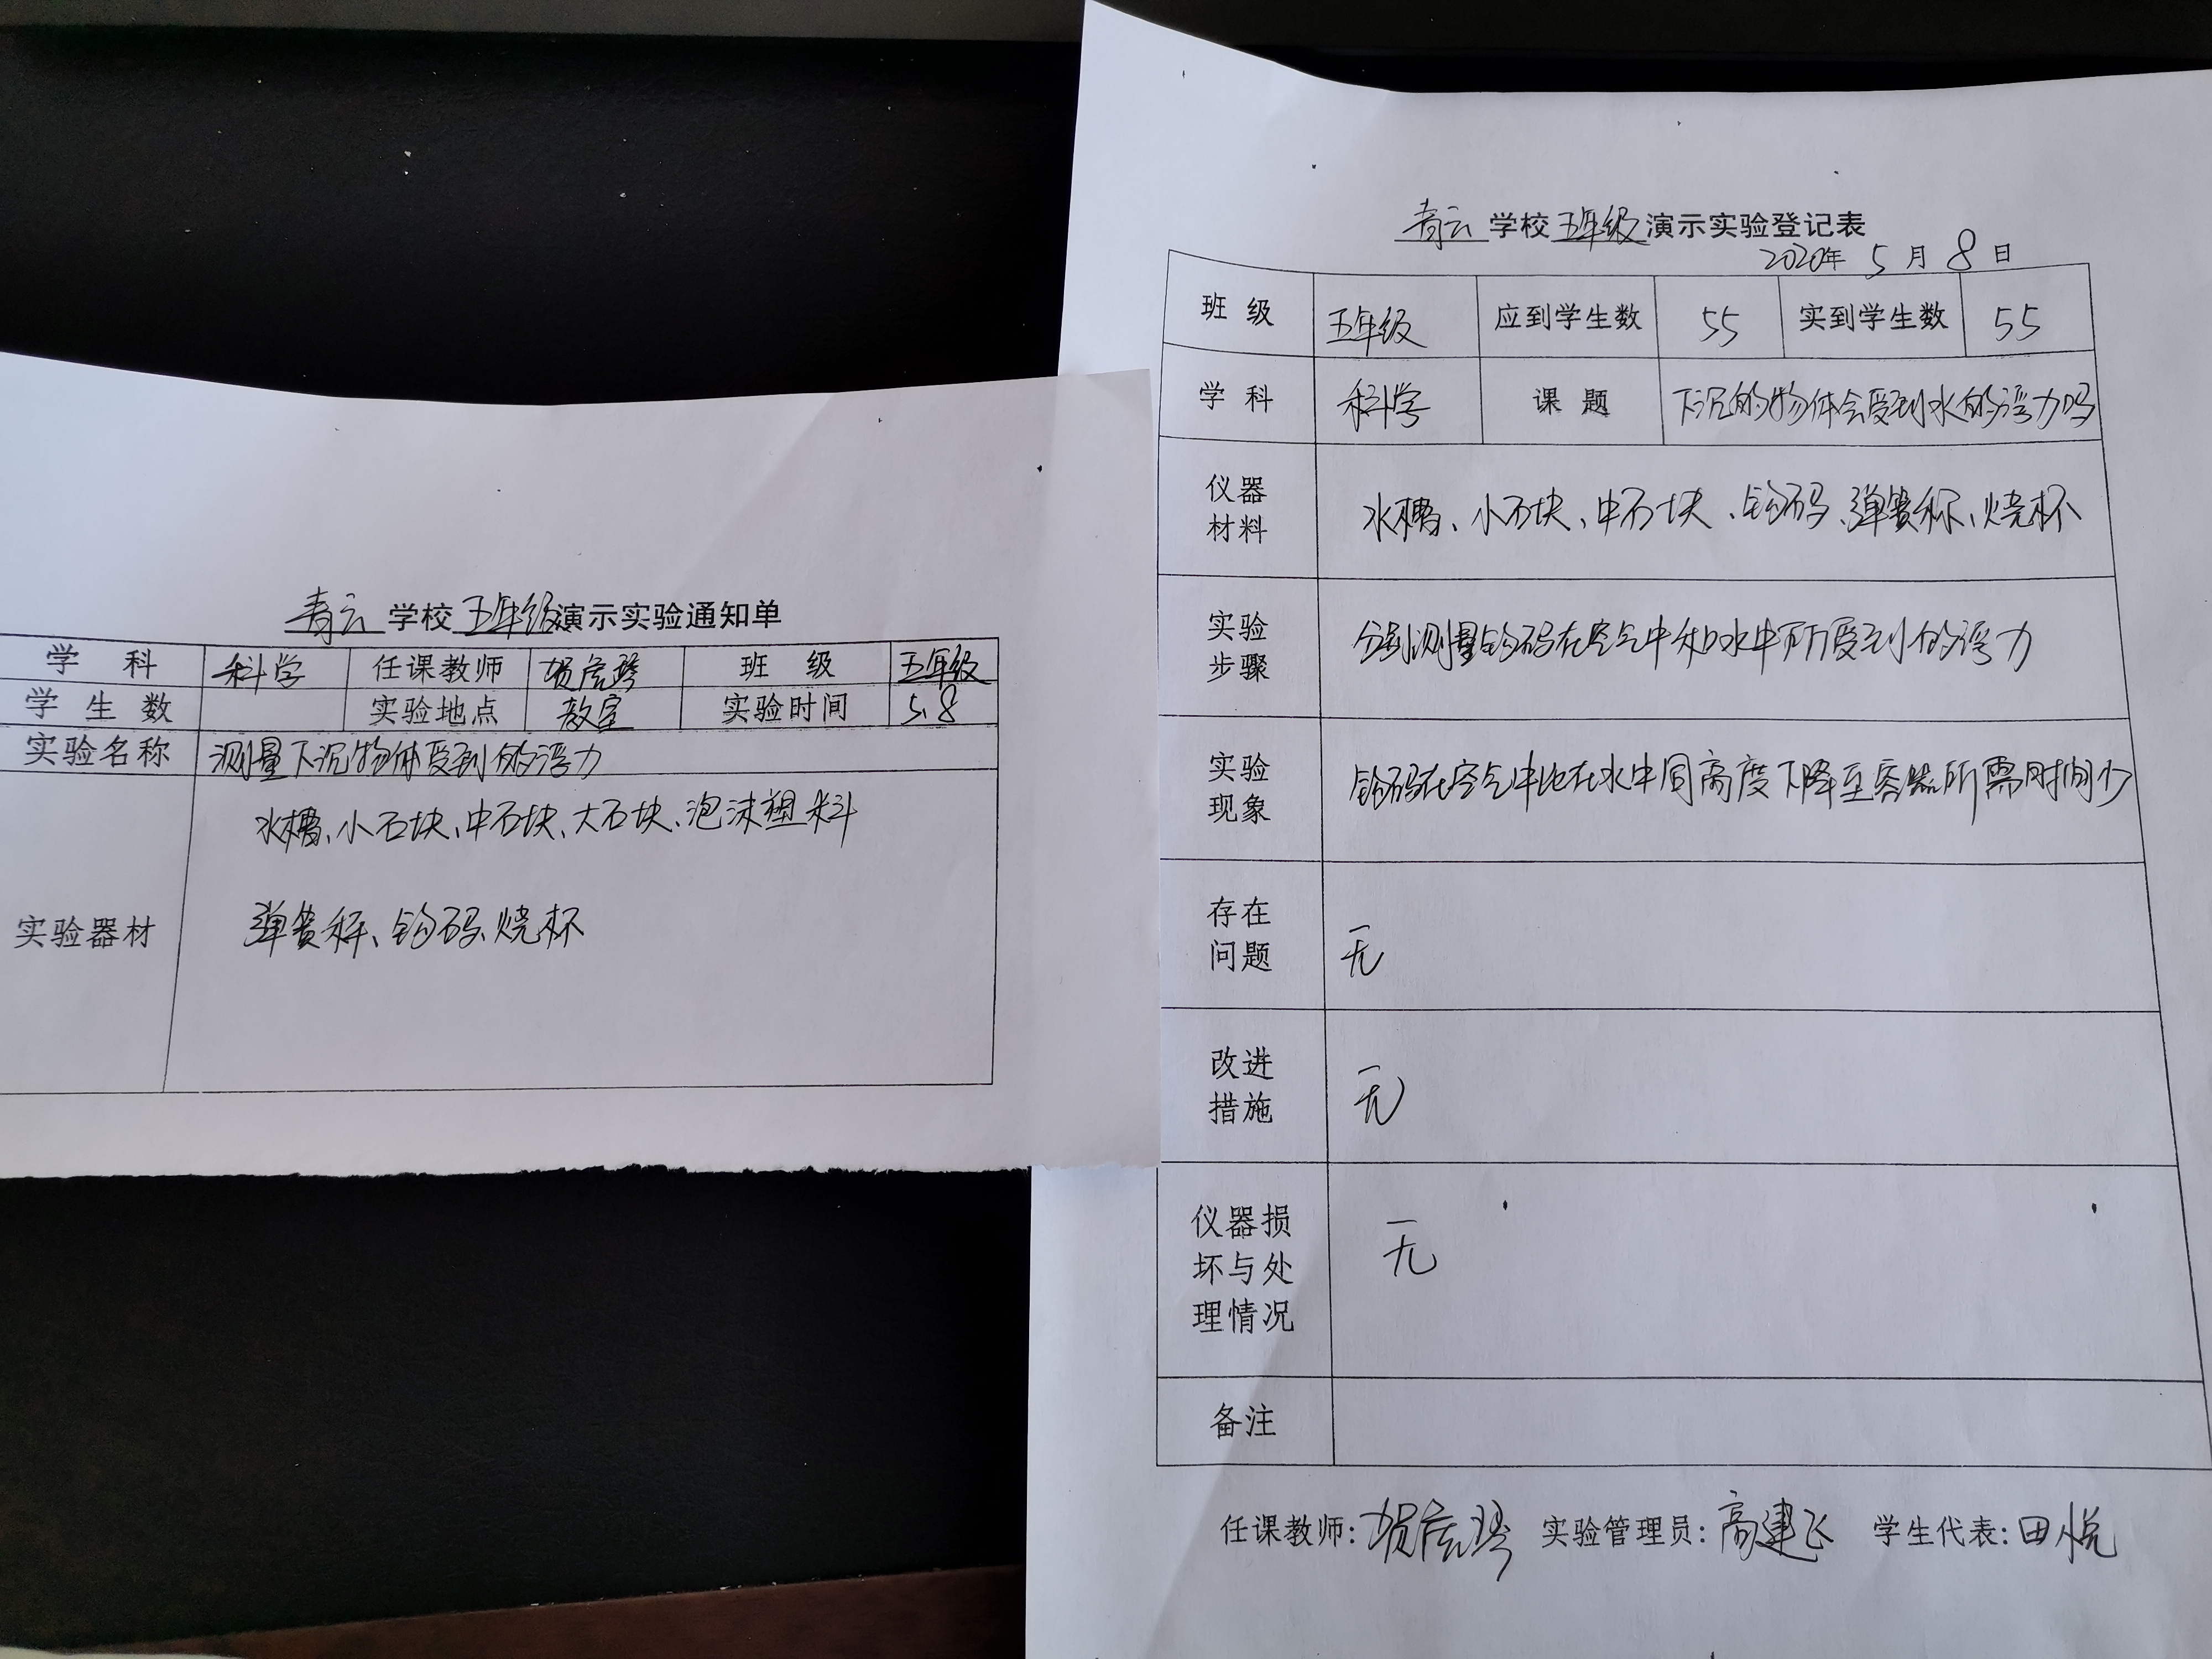 青云 学校 五年级 演示实验通知单
学 科 科学 任课教师 贺 班 级 五年级
学 生 数 实验地点 教室 实验时间 5.8
实验名称 测量下沉物体受到的浮力
实验器材 水槽、小石块、中石块、大石块、泡沫塑料
弹簧称、钩码、烧杯
青云 学校 五年级 演示实验登记表
2020年 5 月 8 日
班 级 五年级 应到学生数 55 实到学生数 55
学 科 科学 课 题 下沉的物体会受到水的浮力吗
仪器
材料
水槽、小石块、中石块、钩码、弹簧称、烧杯
实验
步骤
分别测量钩码在空气中和水中所受到的浮力
实验
现象
钩码在空气中比在水中同高度下降至容器所需时间少
存在
问题
无
改进
措施
无
仪器损
坏与处
理情况
无
备注
任课教师: 贺 实验管理员: 高建飞 学生代表: 田悦